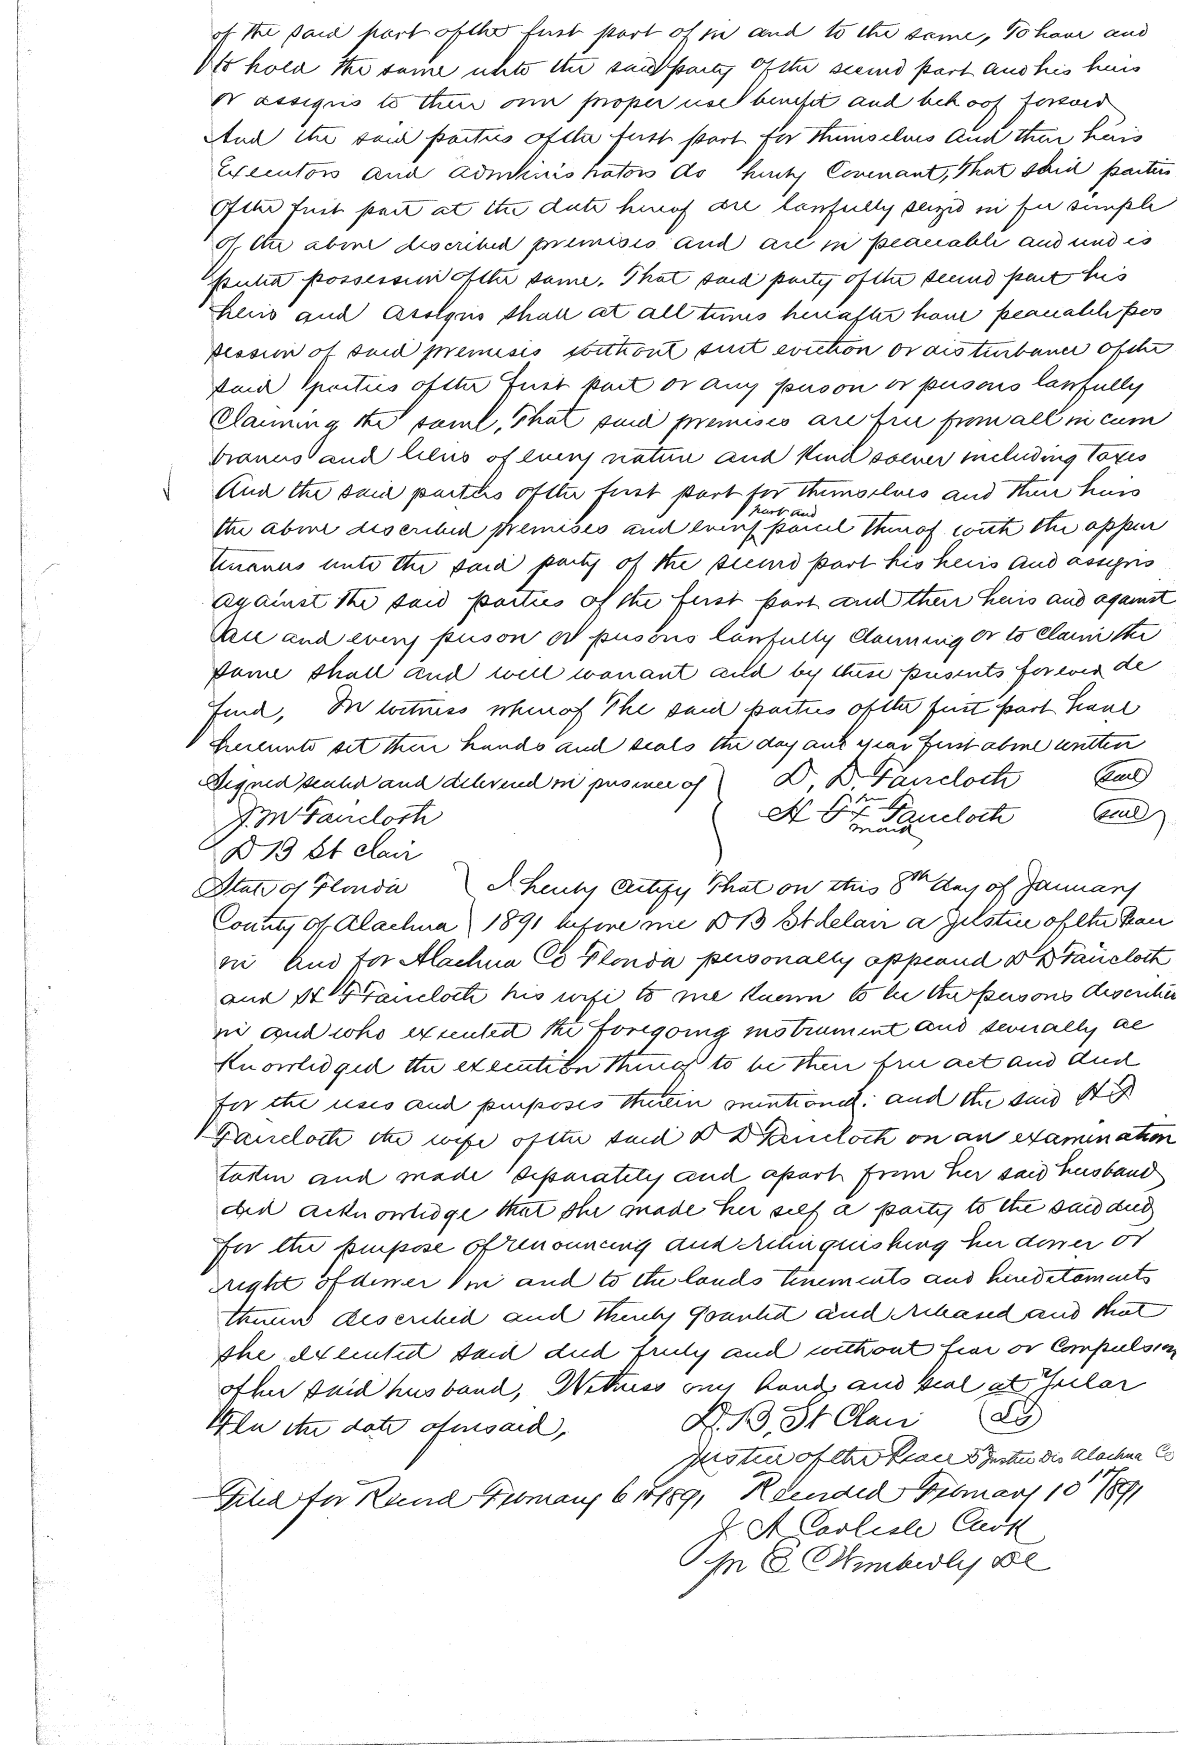 of the said part of the first part of in and to the same, To have and
to hold the same unto the said party of the second part and his heirs
or assigns to their own proper use benefit and behoof forever
And the said parties of the first part for themselves and their heirs
Executors and administrators do hereby Covenant, That said parties
of the first part at the date hereof are lawfully seized in fee simple
of the above described premises and are in peaceable and undis
puted possession of the same. That said party of the second part his
heirs and assigns shall at all times hereafter have peaceable pos
session of said premises without suit eviction or disturbance of the
said parties of the first part or any person or persons lawfully
Claiming the same, That said premises are free from all incum
brances and liens of every nature and Kind soever including Taxes
And the said parties of the first part for themselves and their heirs
the above described premises and every part and parcel thereof with the appur
tenances unto the said party of the second part his heirs and assigns
against the said parties of the first part and their heirs and against
all and every person or persons lawfully claiming or to claim the
same shall and will warrant and by these presents forever de
fend, In witness whereof The said parties of the first part have
hereunto set their hands and seals the day and year first above written
Signed sealed and delivered in presence of D. D. Faircloth seal
J. M Faircloth H F her x mark Faircloth seal
D B St Clair
State of Florida I hereby certify That on this 8th day of January
County of Alachua 1891 before me D B St Clair a Justice of the Peace
in and for Alachua Co Florida personally appeared D D Faircloth
and H F Faircloth his wife to me known to be the persons described
in and who executed the foregoing instrument and severally ac
knowledged the execution thereof to be their free act and deed
for the uses and purposes therein mentioned: and the said H F
Faircloth the wife of the said D D Faircloth on an examination
taken and made separately and apart from her said husband
did acknowledge that she made her self a party to the said deed
for the purpose of renouncing and relinquishing her dower or
right of dower in and to the lands tenements and hereditaments
therein described and thereby granted and released and that
she executed said deed freely and without fear or compulsion
of her said husband, Witness my hand and seal at Jular
Fla the date aforesaid, D. B. St Clair LS
Justice of the Peace 5 Justice Dis Alachua Co
Filed for Record February 6th 1891 Recorded February 10th 1891
J A Carlisle Clerk
pr E C Wimberly DC